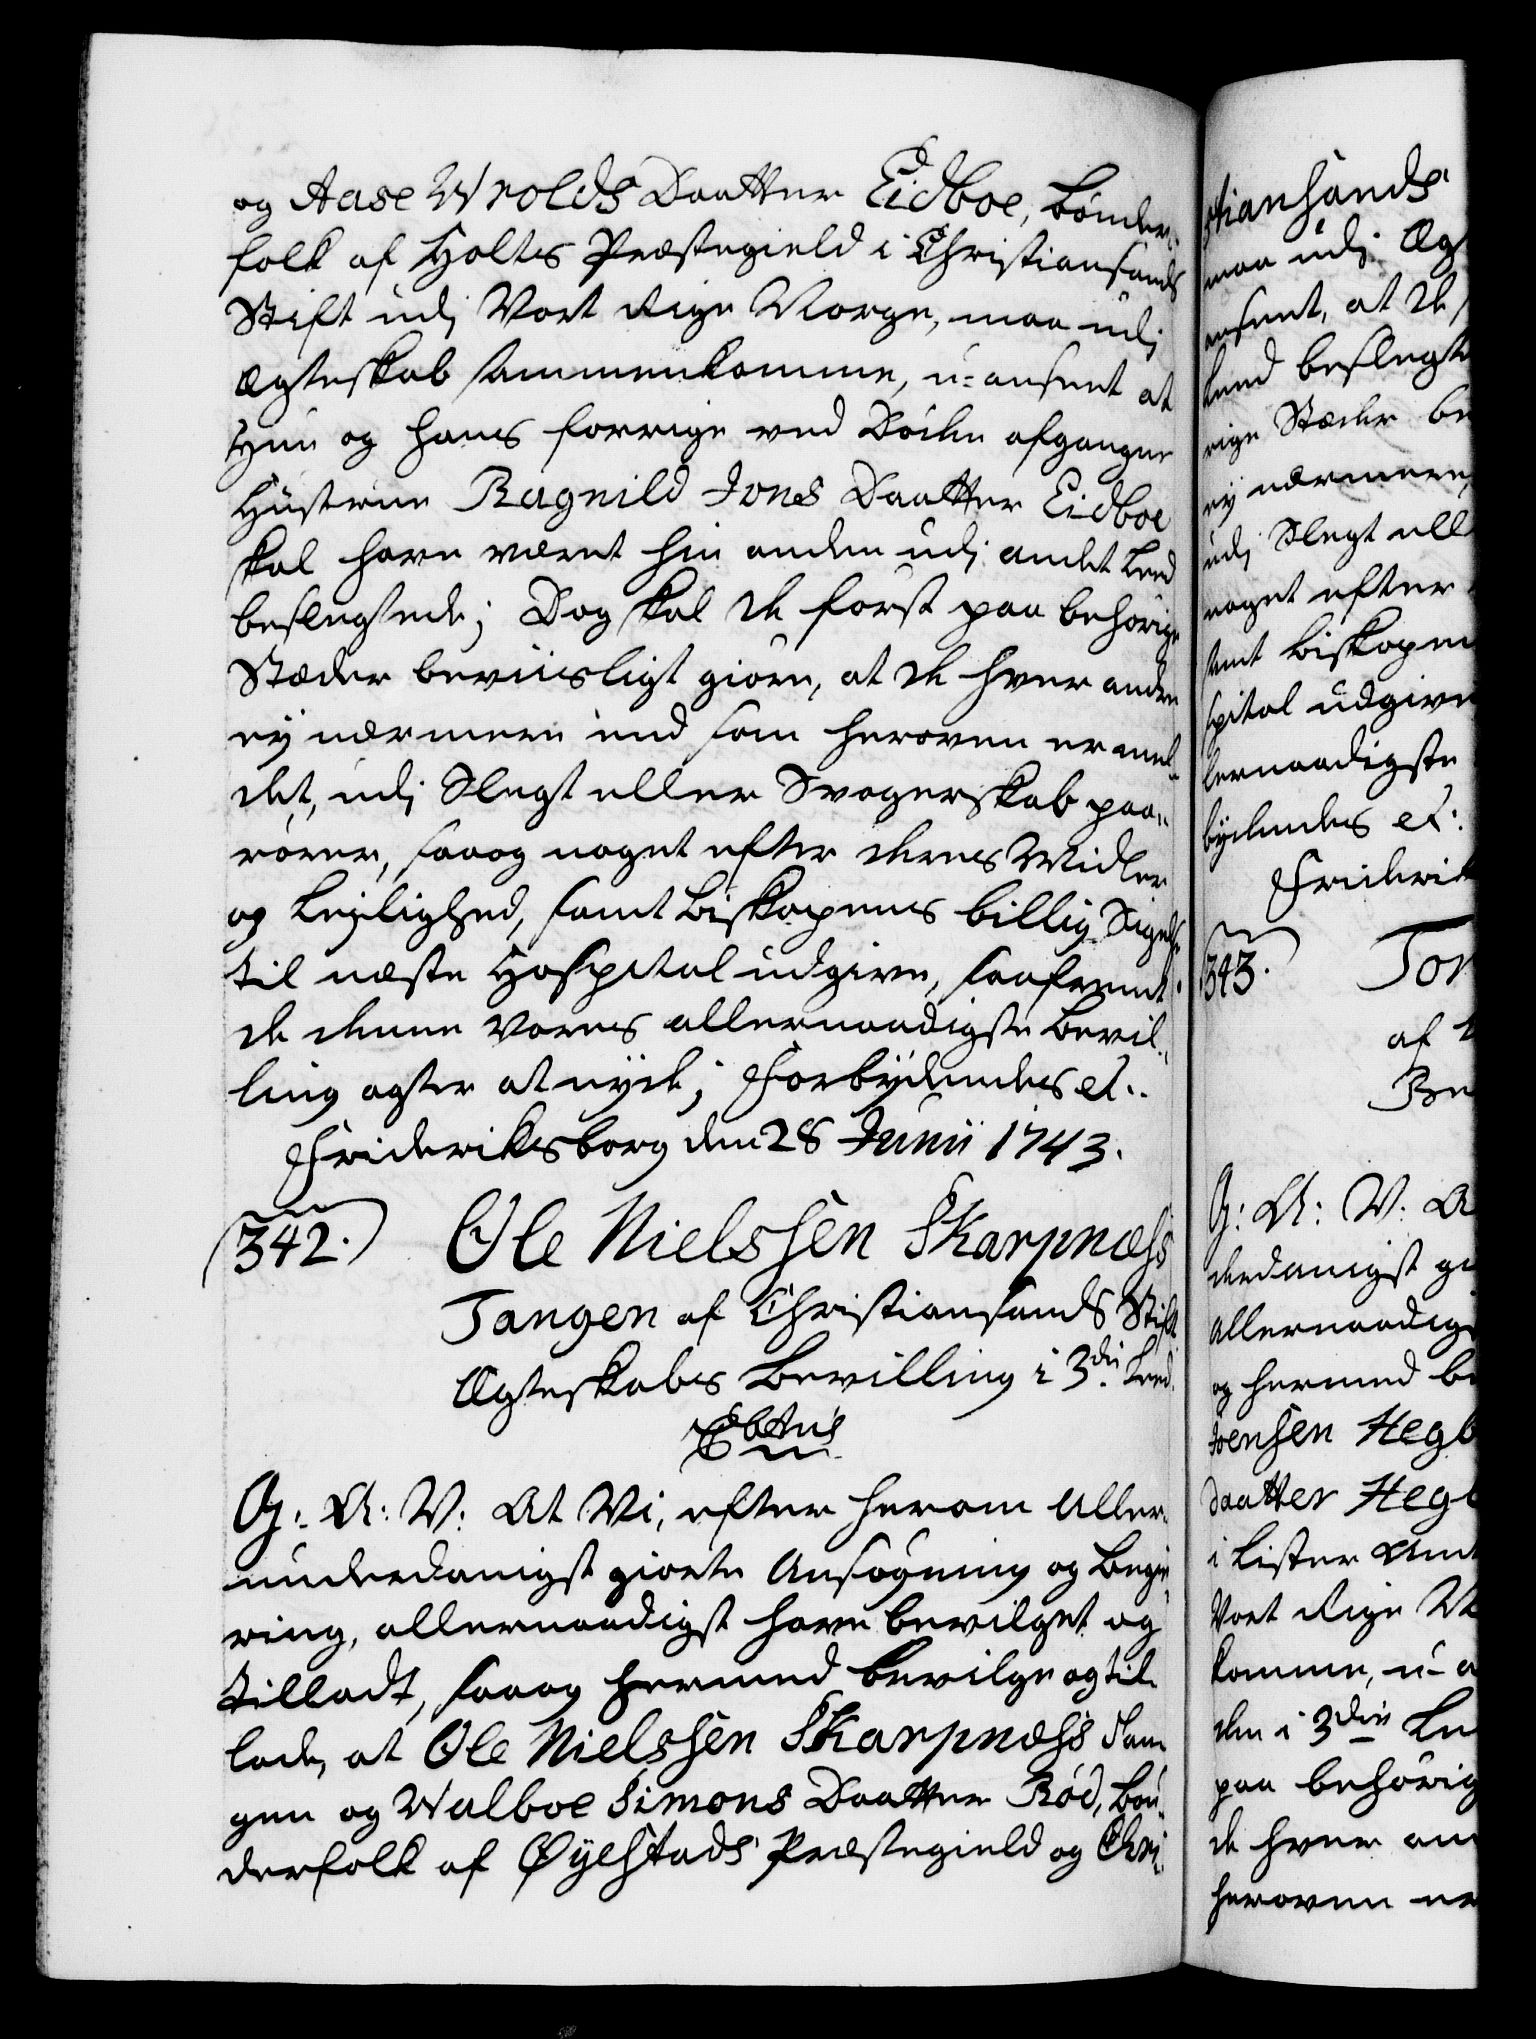 og Aase Wrolds Daatter Eidboe, bønder-
folk af Holtes Præstegield i Christiansands
Stift udj Vort Rige Norge, maa udj
Ægteskab sammenkomme, u-anseet at
Hun og hans forrige ved Døden afgangne
Hustrue Ragnild Jons Daatter Eidboe
skal have været hin anden udj andet Leed
beslegtede; Dog skal de først paa behørige
Stæder beviisligt giøre, at de hver andre
ey nærmere end som heroven er mel-
det, udj Slegt eller Svogerskab paa-
rører, saaog noget efter deres Midler
og Leylighed, samt Biskopens billig Sigelse
til næste Hospital udgive, saafremt
de denne Vores allernaadigste Bevil-
ling agter at nyde; Forbydendes etc.
Frideriksborg den 28 Junii 1743.
342. Ole Nielssen Skarpnæss
Tangen af Christiansands Stift
Ægteskabs Bevilling i 3die Leed.
G: A: V: At Vi, efter herom Aller-
underdanigst giorte Ansøgning og Begie-
ring, allernaadigst have bevilget og
tilladt, saaog hermed bevilge og til-
lade, at Ole Nielssen Skarpnæss Tan-
gen og Walboe Simons Daatter Rød, Bøn-
derfolk af Øyestads Præstegield og Chri-
stianSands
maa udj Æg
anseet, at de
Leed beslegte
rige Stæder be
ey nærmere,
udj Slegt ell
noget efter
samt Biskopen
spital udgive
lernaadigste
bydendes etc.
Friderik
343. Tor
af
Be
G: A: V: A
derdanigst gi
allernaadigs
og hermed be
Joensen Hegb
Daatter Hegb
i Lister Amt
Vort Rige No
komme, u-a
den i 3die Le
paa behørig
de hver an
heroven er